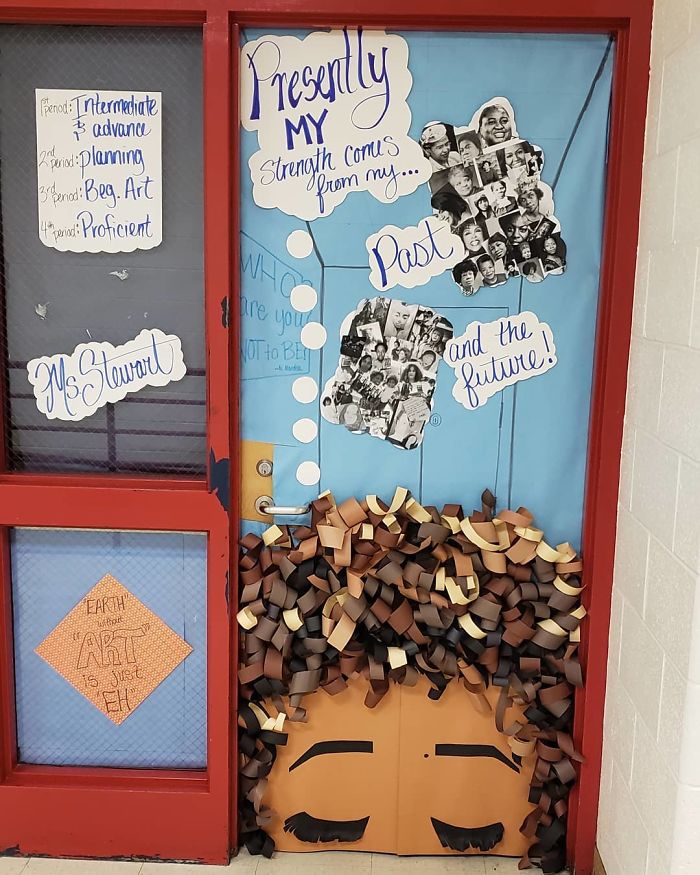 1st period: Intermediate
& advance
2nd period: planning
3rd period: Beg. Art
4th period: Proficient
Ms. Stewart
EARTH
without
"ART"
is just
"EH"
Presently
MY
Strength comes
from my...
Past
and the
future!
WHO
are you
NOT to BE?